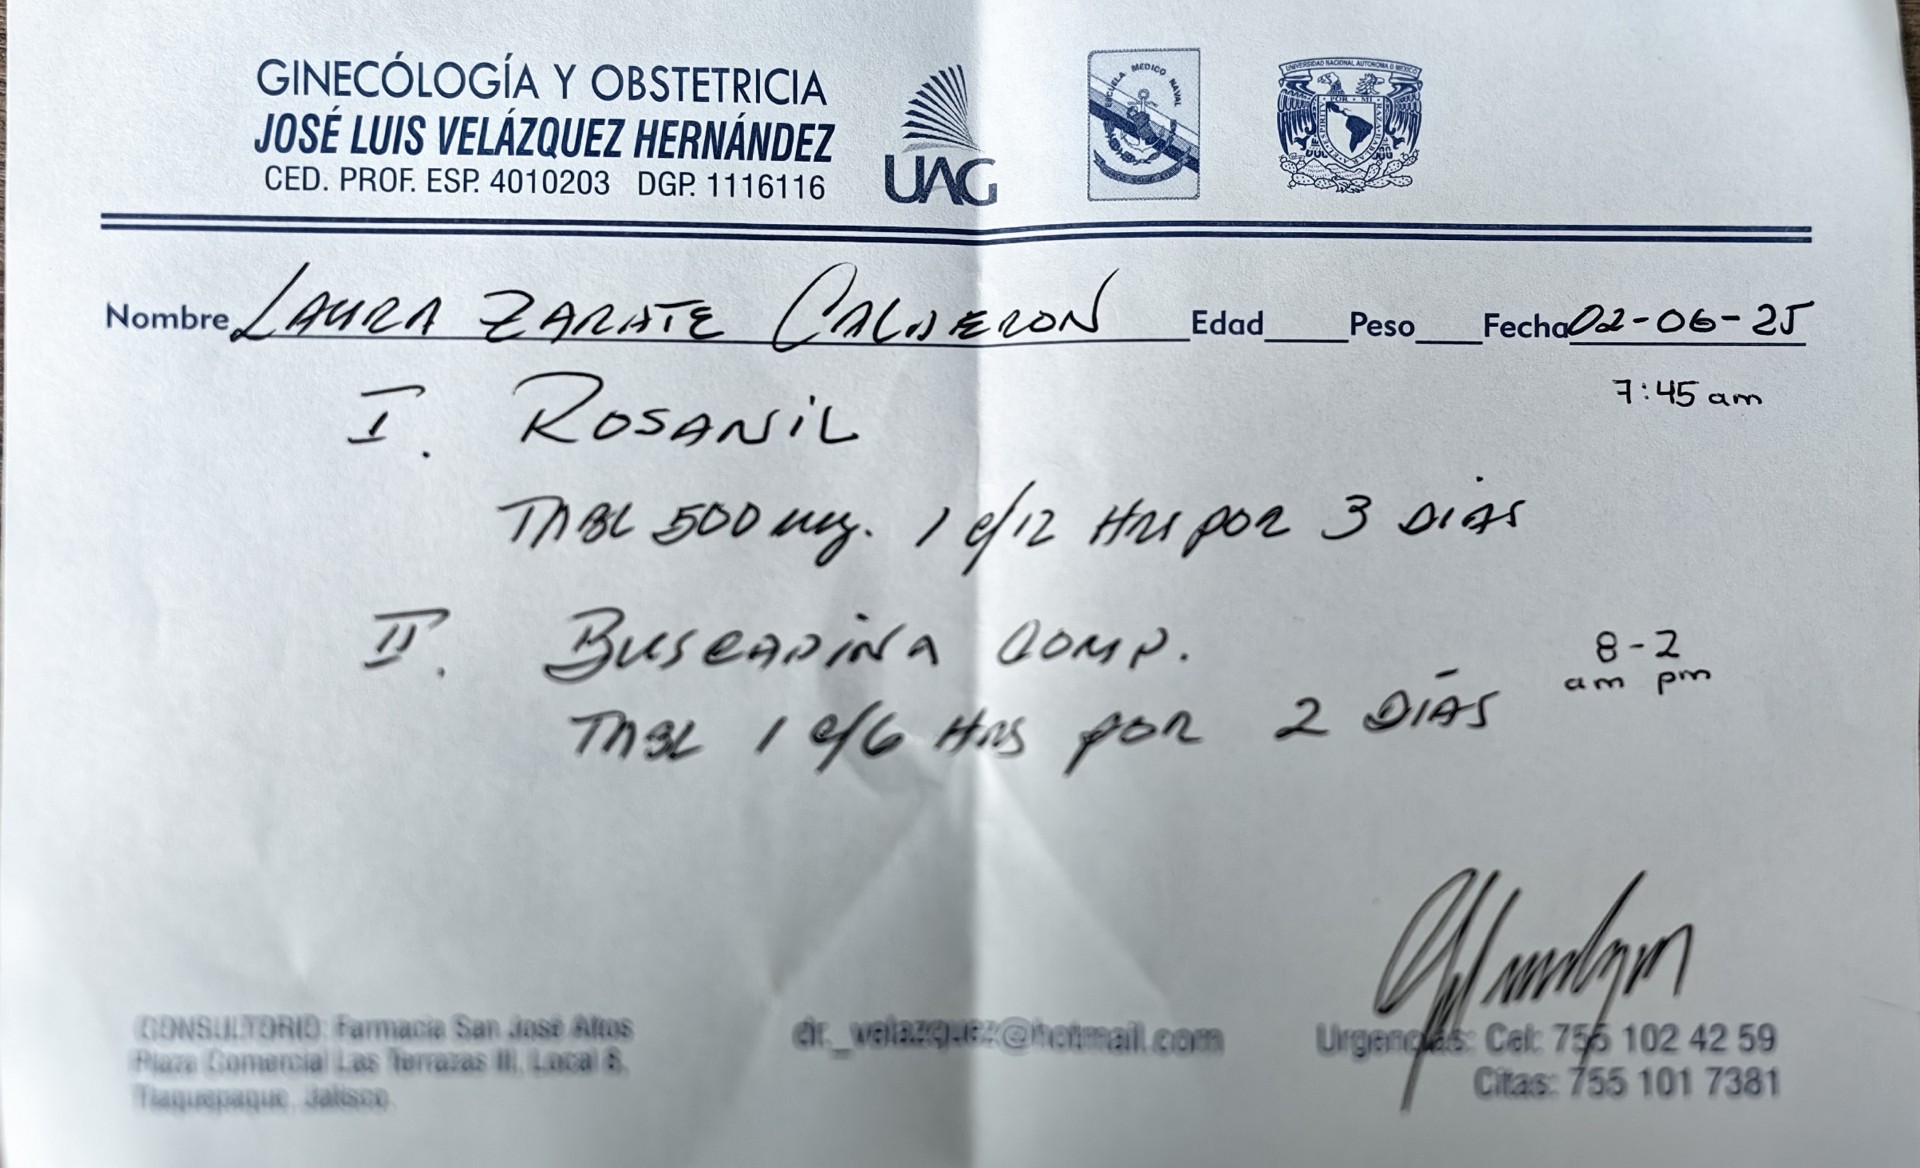 GINECÓLOGÍA Y OBSTETRICIA
JOSÉ LUIS VELÁZQUEZ HERNÁNDEZ
CED. PROF. ESP. 4010203 DGP. 1116116
UAG
ESCUELA MEDICO NAVAL
UNIVERSIDAD NACIONAL AUTONOMA
Nombre LAURA ZARATE CALDERON Edad Peso Fecha 02-06-25
7:45 am
I. ROSANIL
TABL 500 mg. 1 c/12 HRS POR 3 DIAS
II. BUSCAPINA COMP.
8-2
am pm
TABL 1 c/6 HRS POR 2 DÍAS
CONSULTORIO: Farmacia San José Altos
Plaza Comercial Las Terrazas III, Local 6,
Tlaquepaque, Jalisco.
dr_velazquez@hotmail.com
Urgencias: Cel: 755 102 42 59
Citas: 755 101 7381